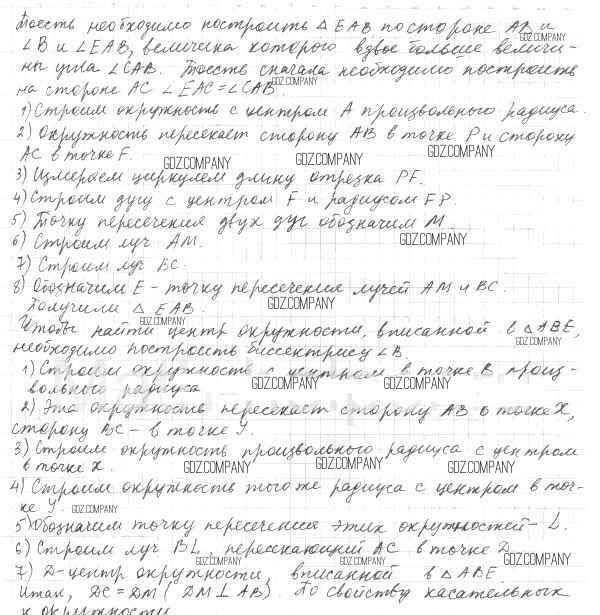 То есть необходимо построить △ EAB по стороне AB и
∠B и ∠EAB, величина которого вдвое больше величи-
GDZ.COMPANY
ны угла ∠CAB. То есть сначала необходимо построить
на стороне AC ∠EAC = ∠CAB.
GDZ.COMPANY
1) Строим окружность с центром A произвольного радиуса.
2) Окружность пересекает сторону AB в точке P и сторону
AC в точке F.
GDZ.COMPANY GDZ.COMPANY GDZ.COMPANY
3) Измеряем циркулем длину отрезка PF.
4) Строим дугу с центром F и радиусом FP.
5) Точку пересечения двух дуг обозначим M.
6) Строим луч AM.
GDZ.COMPANY
7) Строим луч BC.
8) Обозначим E - точку пересечения лучей AM и BC.
Получили △ EAB.
GDZ.COMPANY
GDZ.COMPANY
Чтобы найти центр окружности, вписанной в △ABE,
GDZ.COMPANY
необходимо построить биссектрису ∠B.
1) Строим окружность с центром в точке B произ-
вольного радиуса
GDZ.COMPANY GDZ.COMPANY
2) Эта окружность пересекает сторону AB в точке X,
сторону BC - в точке Y.
3) Строим окружность произвольного радиуса с центром
в точке X.
GDZ.COMPANY GDZ.COMPANY GDZ.COMPANY
4) Строим окружность того же радиуса с центром в точ-
ке Y.
GDZ.COMPANY
5) Обозначим точку пересечения этих окружностей - L.
6) Строим луч BL, пересекающий AC в точке D
GDZ.COMPANY GDZ.COMPANY GDZ.COMPANY
7) D - центр окружности, вписанной в △ABE.
Итак, DC = DM (DM ⊥ AB). По свойству касательных
к окружности